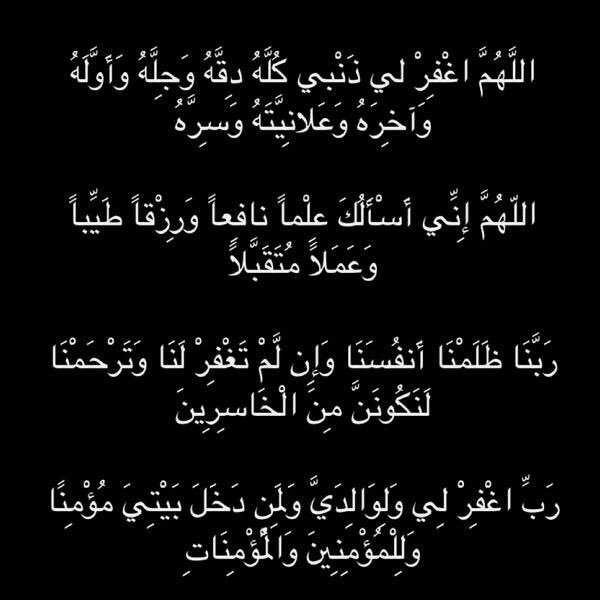 اللَّهُمَّ اغْفِرْ لي ذَنْبي كُلَّهُ دِقَّهُ وَجِلَّهُ وَأَوَّلَهُ
وَآخِرَهُ وَعَلانِيَّتَهُ وَسِرَّهُ
اللّهُمَّ إِنِّي أَسْأَلُكَ عِلْماً نافعاً وَرِزْقاً طَيِّباً
وَعَمَلاً مُتَقَبَّلاً
رَبَّنَا ظَلَمْنَا أَنفُسَنَا وَإِن لَّمْ تَغْفِرْ لَنَا وَتَرْحَمْنَا
لَنَكُونَنَّ مِنَ الْخَاسِرِينَ
رَبِّ اغْفِرْ لِي وَلِوَالِدَيَّ وَلِمَن دَخَلَ بَيْتِيَ مُؤْمِنًا
وَلِلْمُؤْمِنِينَ وَالْمُؤْمِنَاتِ